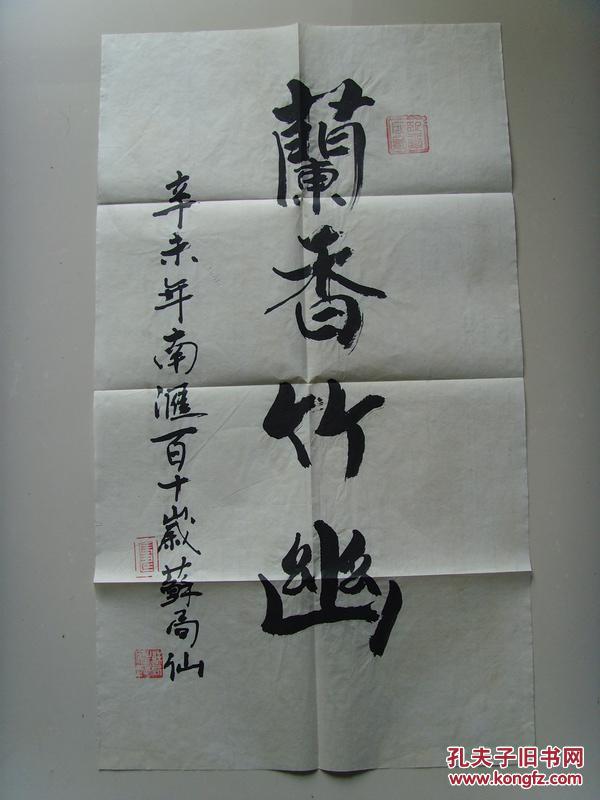 蘭香竹幽
辛未年南滙百十歲蘇局仙
孔夫子旧书网
www.kongfz.com